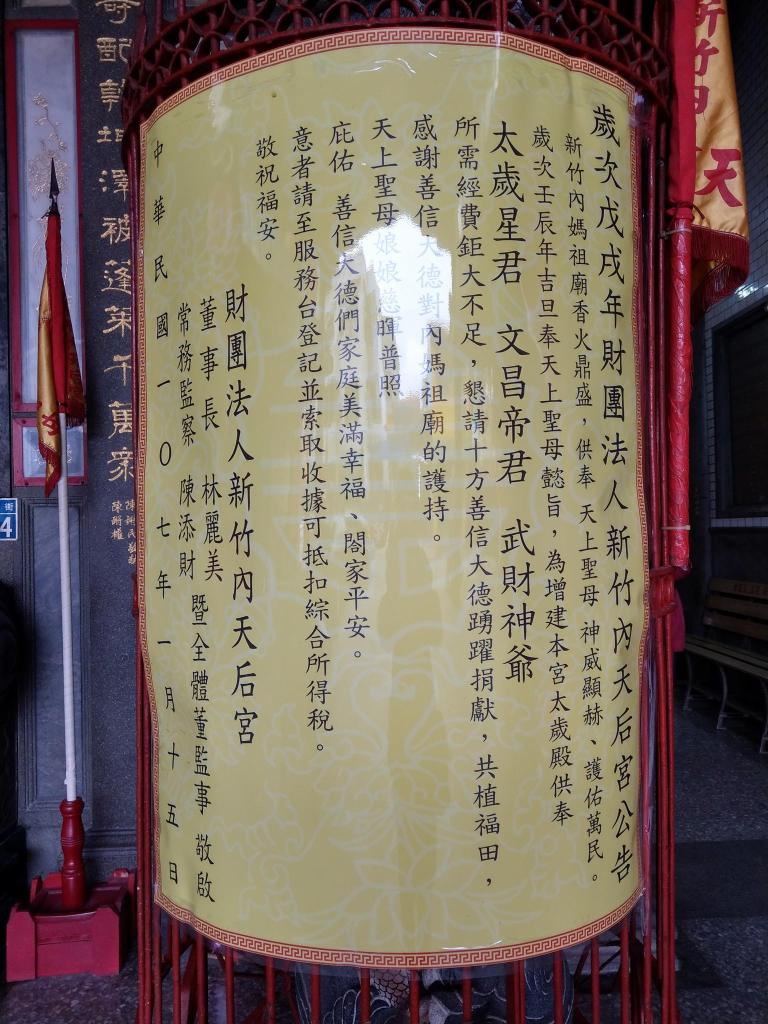 歲次戊戌年財團法人新竹內天后宮公告
新竹內媽祖廟香火鼎盛，供奉 天上聖母 神威顯赫、護佑萬民。
歲次壬辰年吉旦奉天上聖母懿旨，為增建本宮太歲殿供奉
太歲星君 文昌帝君 武財神爺
所需經費鉅大不足，懇請十方善信大德踴躍捐獻，共植福田，
感謝善信大德對內媽祖廟的護持。
天上聖母娘娘慈暉普照
庇佑 善信大德們家庭美滿幸福、閤家平安。
意者請至服務台登記並索取收據可抵扣綜合所得稅。
敬祝福安。
財團法人新竹內天后宮
董事長 林麗美
常務監察 陳添財
暨全體董監事 敬啟
中華民國一〇七年一月十五日
新竹內
天
奇配乾坤澤被蓬萊千萬眾
街
4